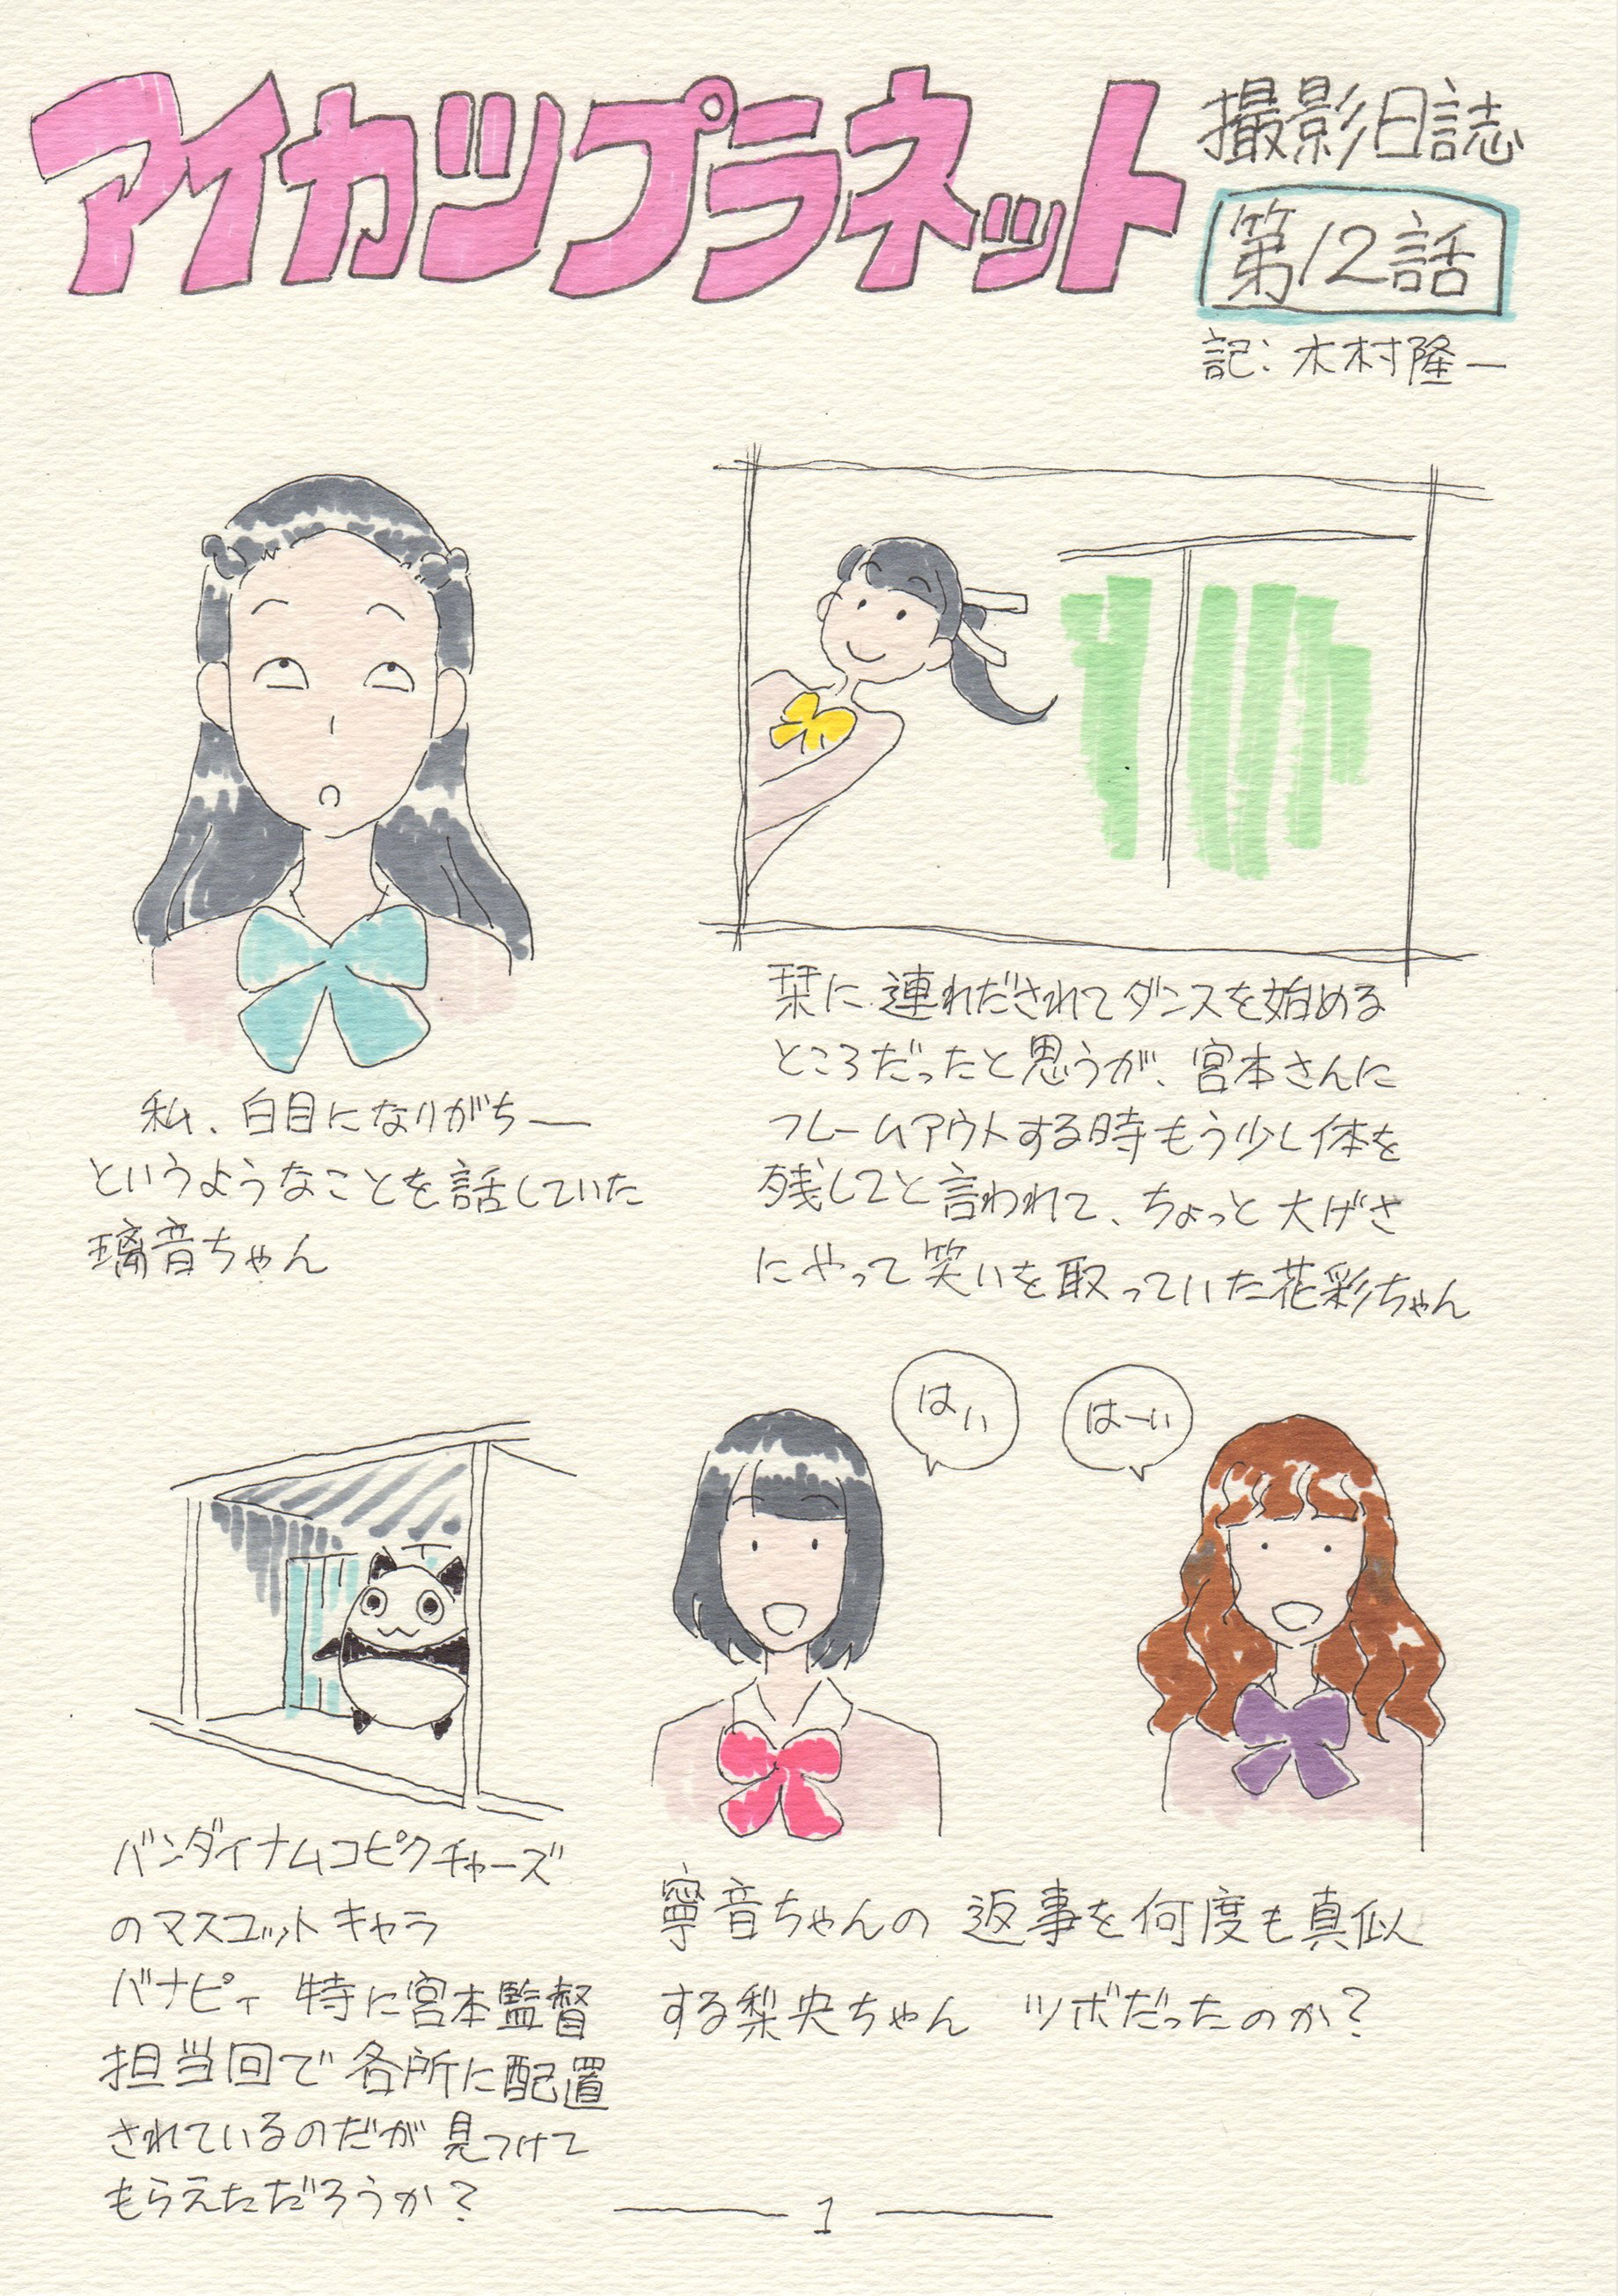 アイカツプラネット
撮影日誌
第12話
記：木村隆一
私、白目になりがち―
というようなことを話していた
璃音ちゃん
栞に連れだされてダンスを始める
ところだったと思うが、宮本さんに
フレームアウトする時もう少し体を
残してと言われて、ちょっと大げさ
にやって笑いを取っていた花彩ちゃん
バンダイナムコピクチャーズ
のマスコットキャラ
バナピィ 特に宮本監督
担当回で各所に配置
されているのだが見つけて
もらえただろうか？
はい
はーい
寧音ちゃんの返事を何度も真似
する梨央ちゃん ツボだったのか？
1